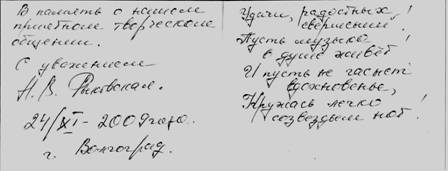 В память о нашем
приятном творческом
общении.
С уважением
Н. В. Рыковская.
24/XI - 2009 года.
г. Волгоград.
Удачи, радостных
свершений!
Пусть музыка
в душе живёт!
И пусть не гаснет
вдохновенье,
Кружась легко
созвездьем нот!